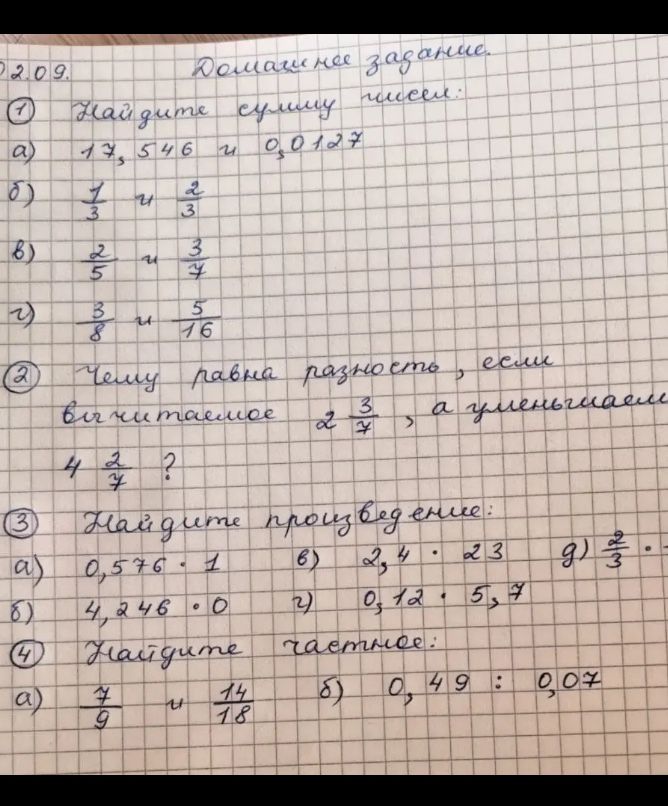 02.09. Домашнее задание.
① Найдите сумму чисел:
а) 17,546 и 0,0127
б) 1/3 и 2/3
в) 2/5 и 3/7
г) 3/8 и 5/16
② Чему равна разность, если
вычитаемое 2 3/7, а уменьшаем
4 2/7 ?
③ Найдите произведение:
а) 0,576 · 1 в) 2,4 · 23 д) 2/3 ·
б) 4,246 · 0 г) 0,12 · 5,7
④ Найдите частное:
а) 7/9 и 14/18 б) 0,49 : 0,07